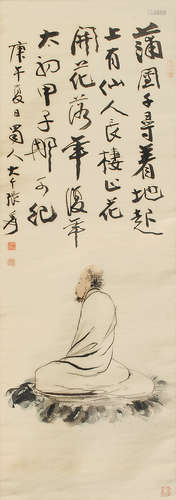 蒲團千尋着地起
上有仙人長棲止花
開花落年復年
太初甲子那可紀
庚午夏日蜀人大千張爰